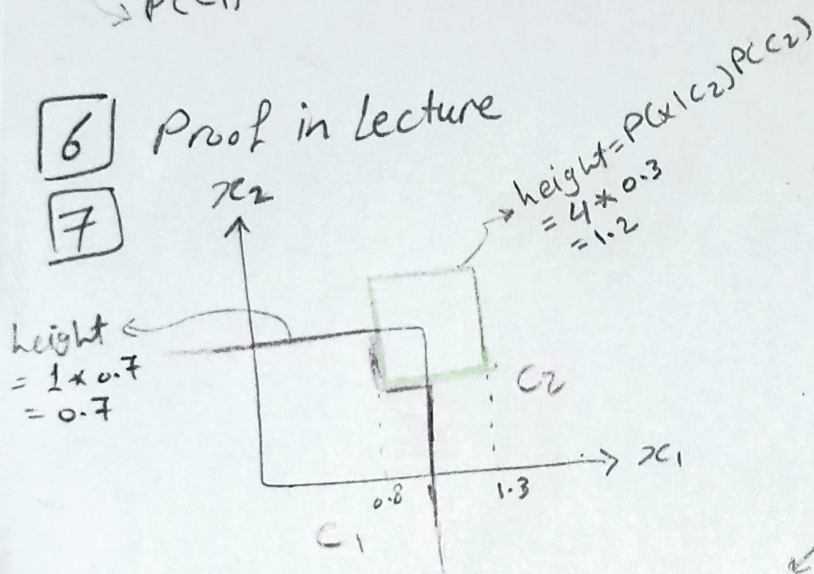 P(C1)
6 Proof in Lecture
7
x2
height = P(x|C2) P(C2)
= 4 * 0.3
= 1.2
height
= 1 * 0.7
= 0.7
C2
x1
0.8
1.3
C1